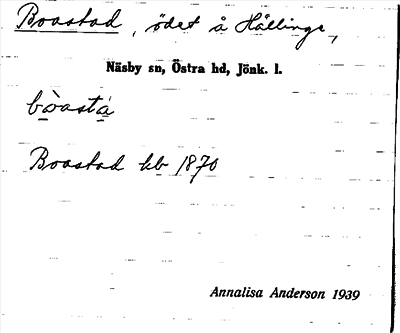 Boastad, ödet å Hällinge,
Näsby sn, Östra hd, Jönk. l.
bo̱asta̱
Boastad kb 1870
Annalisa Anderson 1939